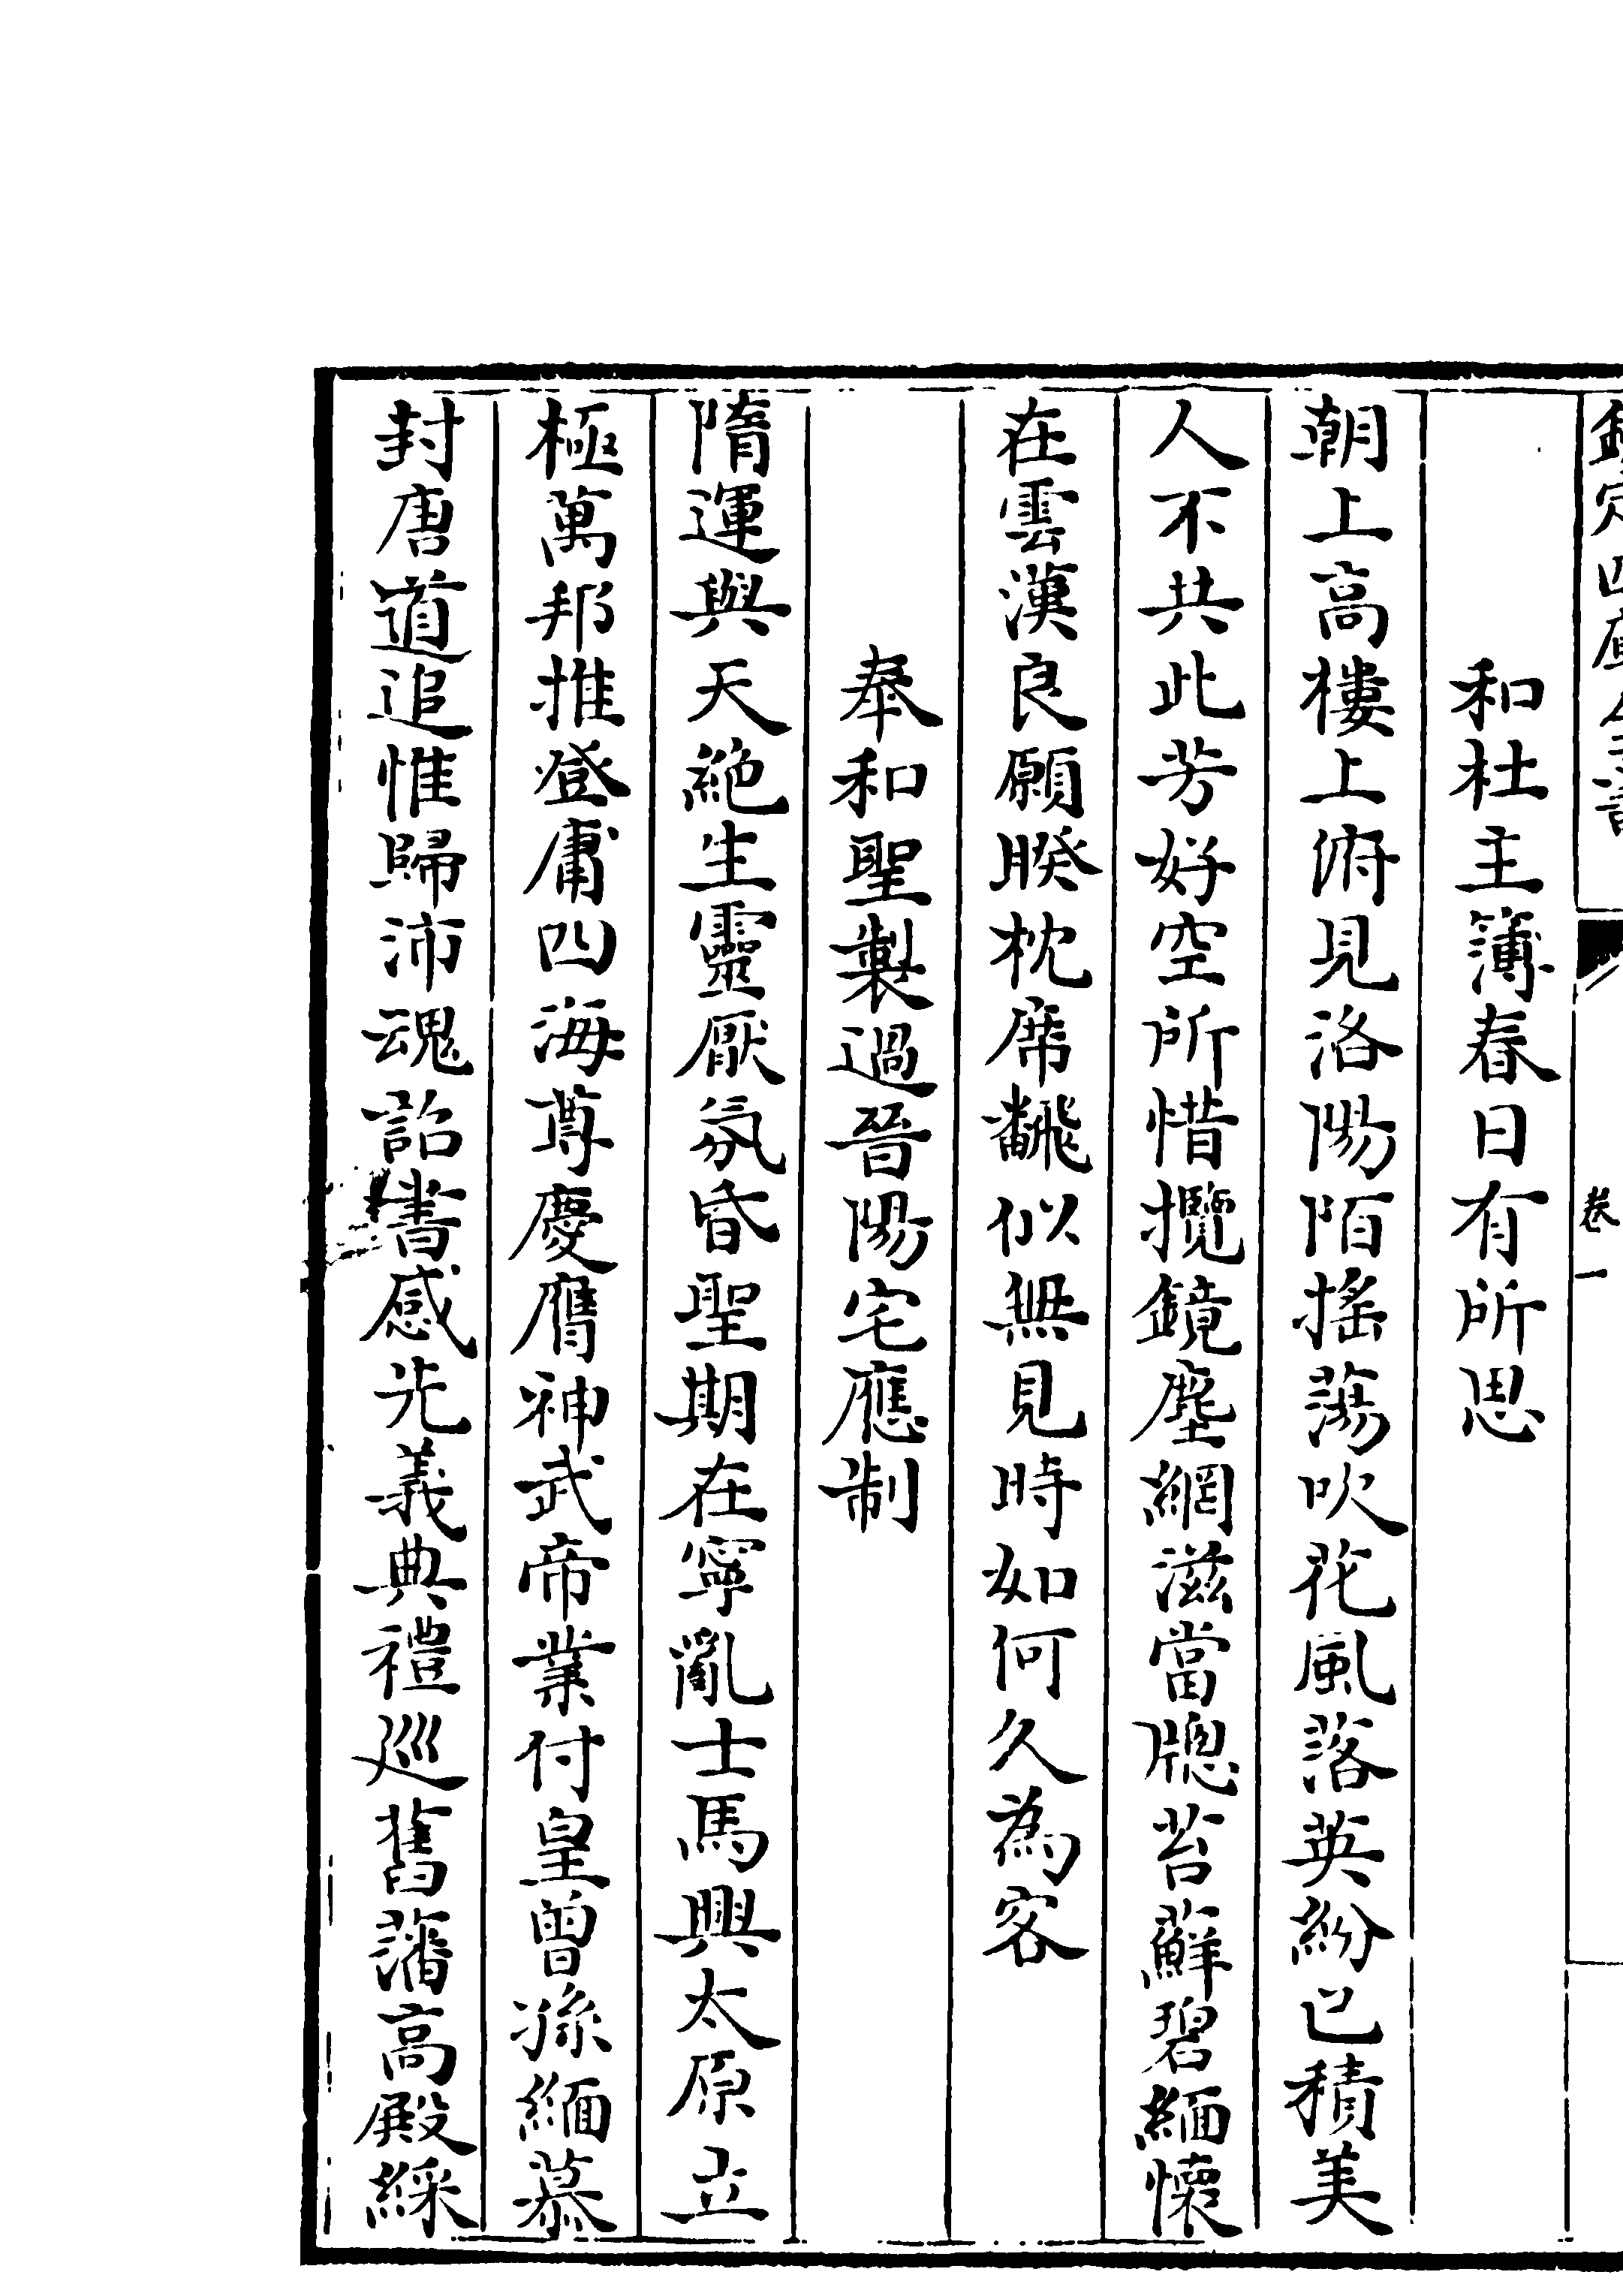 欽定四庫全書 卷一
和杜主簿春日有所思
朝上高樓上俯見洛陽陌搖蕩吹花風落英紛已積美
人不共此芳好空所惜攬鏡塵網滋當牎苔蘚碧緬懷
在雲漢良願暌枕席飜似無見時如何久為客
奉和聖製過晉陽宅應制
隋運與天絶生靈厭氛昏聖期在寧亂士馬興太原立
極萬邦推登庸四海尊慶膺神武帝業付皇曾孫緬慕
封唐道追惟歸沛魂詔書感先義典禮巡舊藩高殿綵